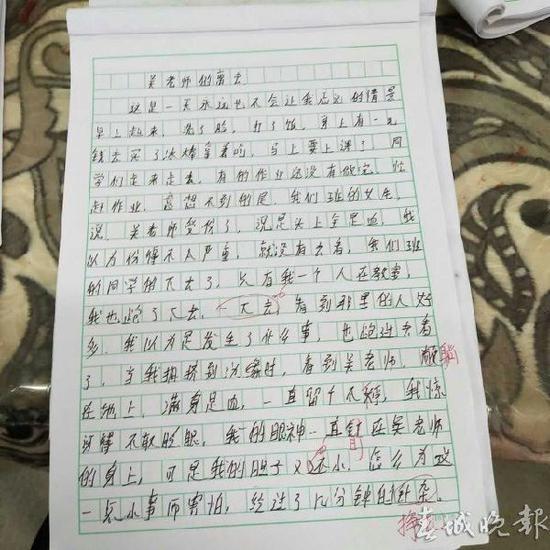 吴老师的离去
这是一天永远也不会让我忘记的情景
早上起来，洗了脸，打了饭，身上有一元
钱去买了冰棒拿着吃，马上要上课了，同
学们走来走去，有的作业还没有做完，忙
赶作业，意想不到的是，我们班的女生
说，吴老师受伤了，说是头上全是血，我
以为伤得不太严重，就没有去看，我们班
的同学的下去了，只有我一个人在教室，
我也跑了下去，一下去，看到那里的人好
多，我以为是发生了什么事，也跑过去看
了，当我拥挤到边缘时，看到吴老师，躺
在地上，满身是血，一直留个不穜，我惊
讶得不敢眨眼，我的眼神一直盯在吴老师
的身上，可是我的胆子又还小，怎么为这
一点小事而害怕，经过了几分钟的
春城晚报